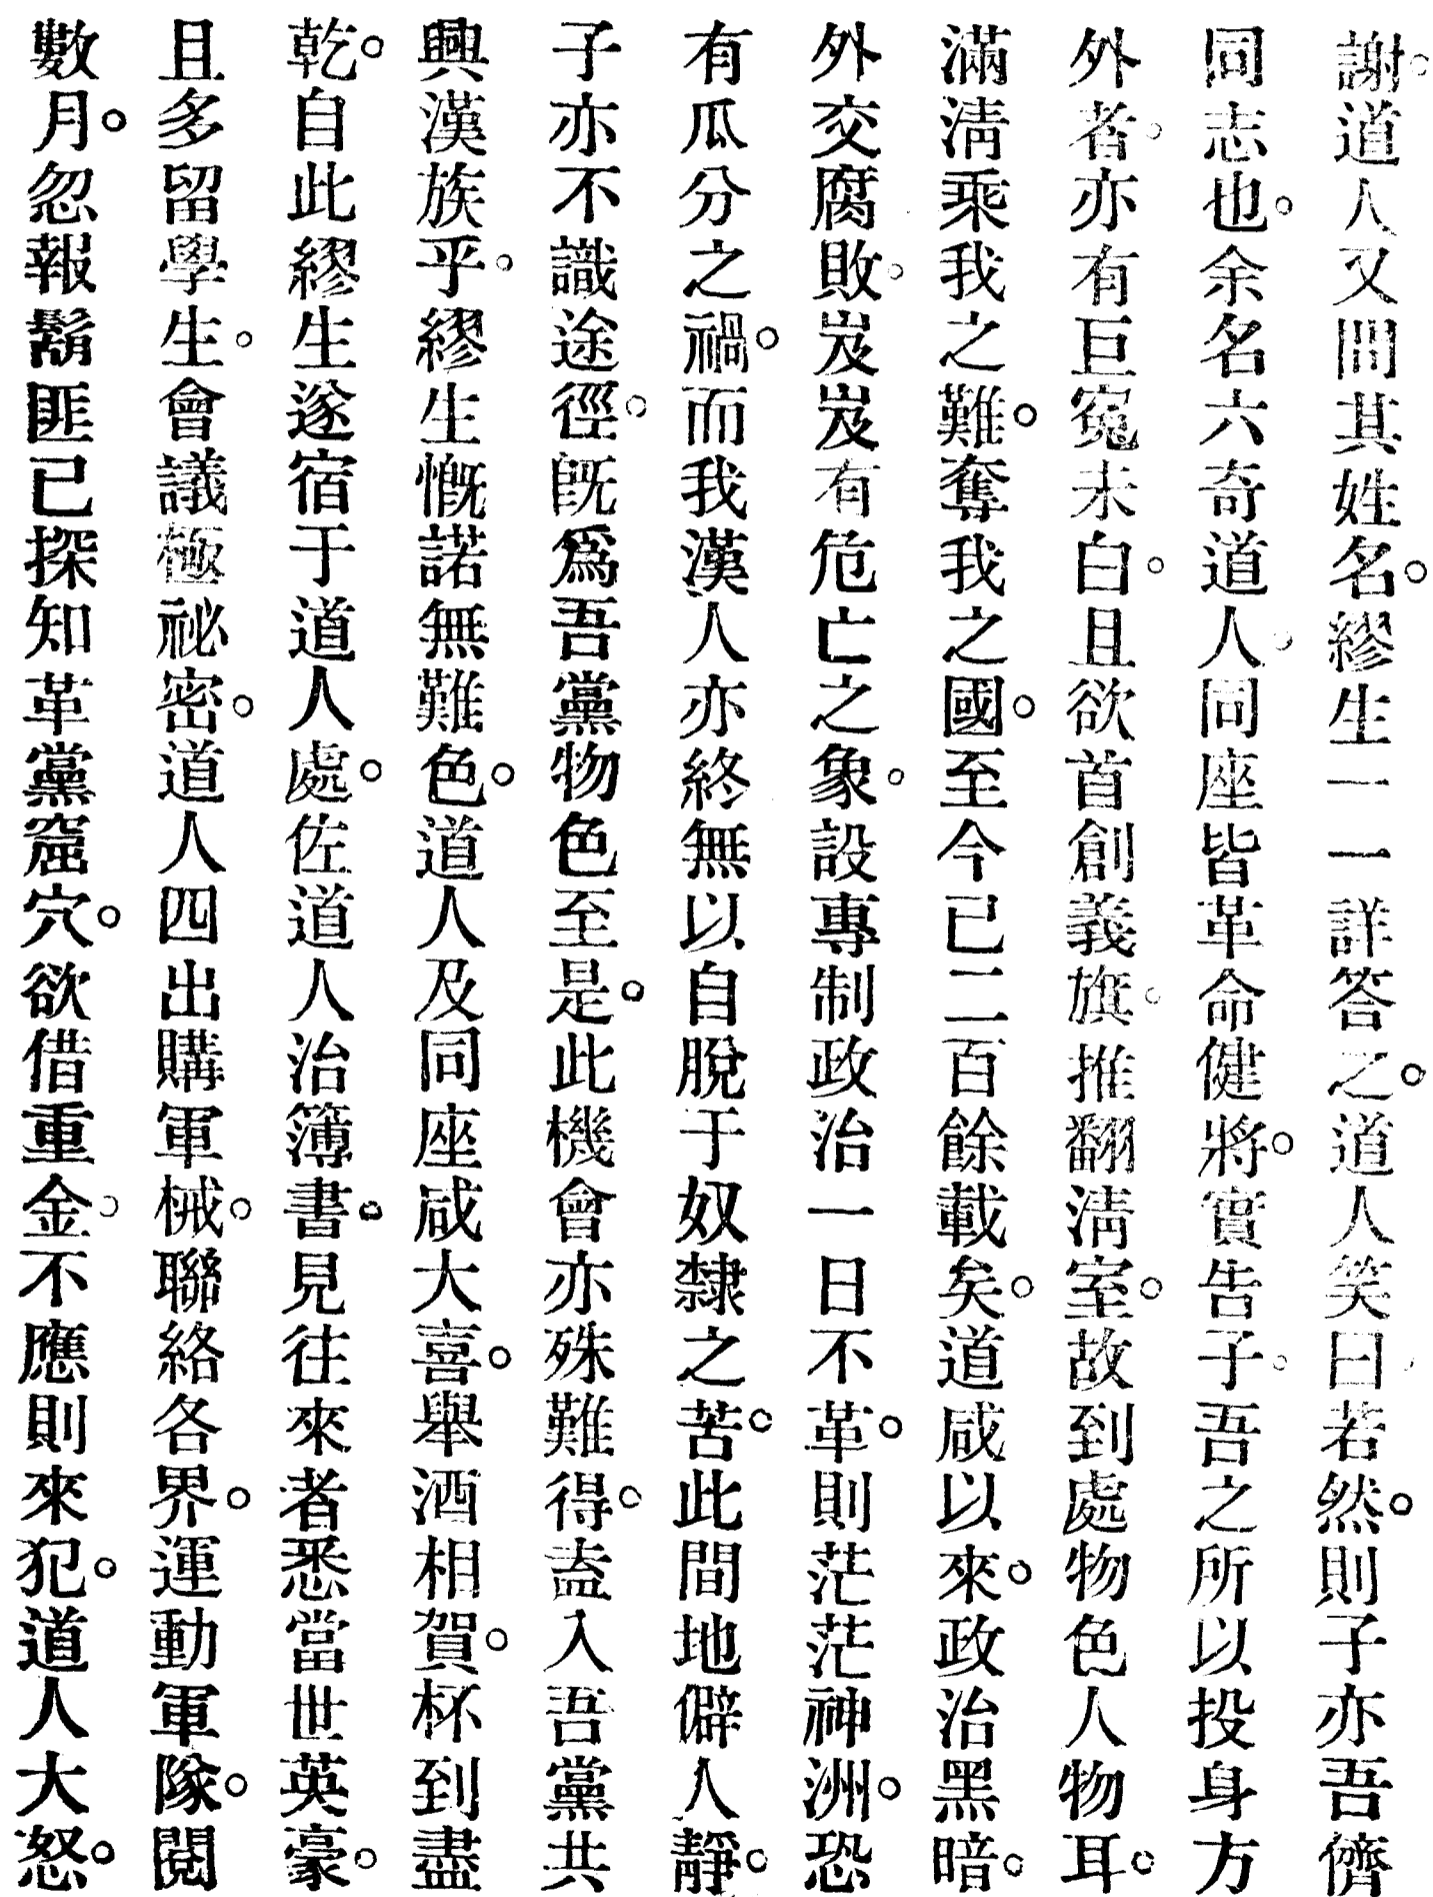 謝。道人又問其姓名。繆生一一詳答之。道人笑曰若然。則子亦吾儕
同志也。余名六奇道人。同座皆革命健將。實告子。吾之所以投身方
外者。亦有巨冤未白。且欲首創義旗。推翻淸室。故到處物色人物耳。
滿淸乘我之難。奪我之國。至今已二百餘載矣。道咸以來。政治黑暗。
外交腐敗。岌岌有危亡之象。設專制政治一日不革。則茫茫神洲。恐
有瓜分之禍。而我漢人亦終無以自脫于奴隸之苦。此間地僻人靜。
子亦不識途徑。旣爲吾黨物色至是。此機會亦殊難得。盍入吾黨共
興漢族乎。繆生慨諾無難色。道人及同座咸大喜。舉酒相賀。杯到盡
乾。自此繆生遂宿于道人處。佐道人治簿書。見往來者悉當世英豪。
且多留學生。會議極祕密。道人四出購軍械。聯絡各界。運動軍隊。閱
數月。忽報鬍匪已探知革黨窟穴。欲借重金。不應則來犯。道人大怒。